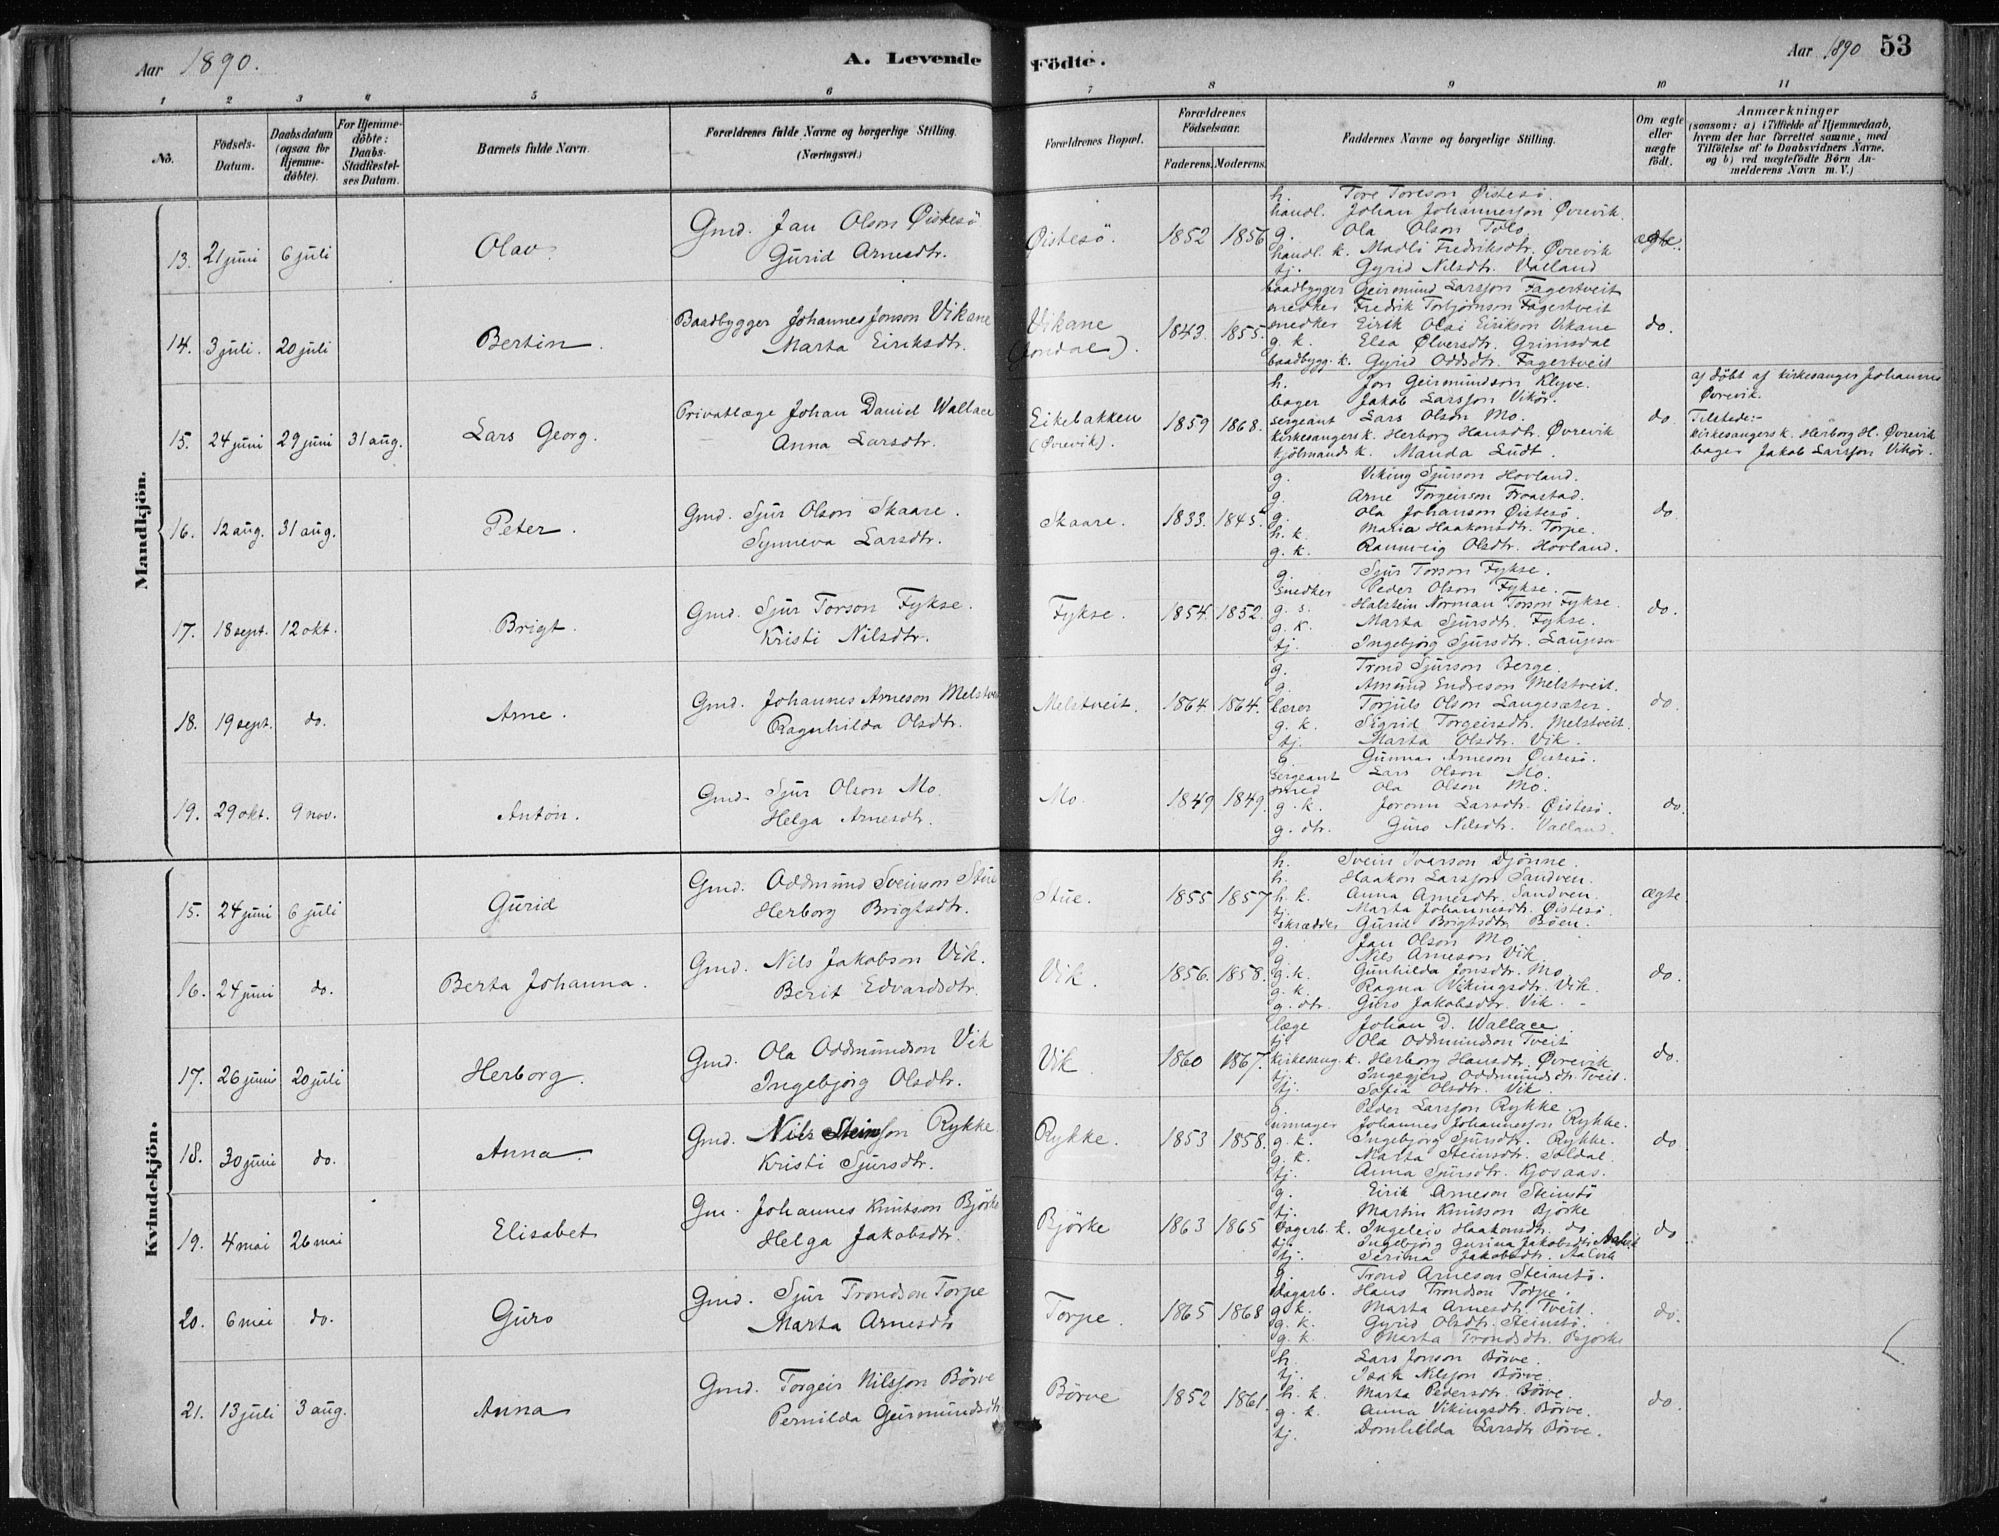 Aar 1890. A. Levende Födte. Aar 1890 53
1 2 3 4 5 6 7 8 9 10 11
No. Födsels-Datum. Daabsdatum (ogsaa for Hjemmedöbte). For Hjemmedöbte: Daabs-Stadfæstelses Datum. Barnets fulde Navn. Forældrenes fulde Navne og borgerlige Stilling. (Næringsvei.) Forældrenes Bopæl. Forældrenes Födselsaar. Faderens. Moderens. Faddernes Navne og borgerlige Stilling. Om ægte eller uægte födt. Anmærkninger (saasom: a) i Tilfælde af Hjemmedaab, hvem der har forrettet samme, med Tilföielse af to Daabsvidners Navne, og b) ved uægtefödte Börn Anmelderens Navn m. V.)
Mandkjön.
13. 21 juni 6 juli Olav Gmd. Jan Olson Øistesö Gurid Arnesdtr. Øistesö. 1852 1856 ægte.
h. Tore Toreson Øistesö.
handl. Johan Johannesson Øvrevik.
g. Ola Olson Tolo
handl. k. Madli Fredriksdtr. Øvrevik
tj. Gyrid Nilsdtr. Valland
14. 3 juli. 20 juli Bertin. Baadbygger Johannes Jonson Vikane Marta Eiriksdtr. Vikane (Jondal). 1843. 1855. do.
baadbygger Geirmund Larsson Fagertveit
snedker Fredrik Torbjørnson Fagertveit
snedker Eirik Olai Eirikson Vikane
g. k. Elsa Ølversdtr. Grimsdal
baadbygg. k. Gyrid Oddsdtr. Fagertveit
15. 24 juni 29 juni 31 aug. Lars Georg. Privatlæge Johan Daniel Wallace Anna Larsdtr. Eikebakken (Øvrevik). 1859 1868. do
h. Jon Geirmundson Klyve.
bager Jakob Larsson Vikør.
sergeant Lars Olson Mo.
kirkesangers k. Herborg Hansdtr. Øvrevik
kjøbmands k. Manda Ludt.
a) døbt af kirkesanger Johannes Øvrevik.
Tilstede:-
kirkesangers k. Herborg H. Øvrevik
bager Jakob Larsson Vikør.
16. 12 aug. 31 aug. Peter. Gmd. Sjur Olson Skaare. Synneva Larsdtr. Skaare. 1833. 1845. do.
g. Viking Sjurson Hovland.
g. Arne Torgeirson Froastad.
g. Ola Johanson Øistesö.
h. k. Maria Haakonsdtr. Torpe.
g. k. Rannveig Olsdtr. Hovland.
17. 18 sept. 12 okt. Brigt. Gmd. Sjur Torson Fykse. Kristi Nilsdtr. Fykse. 1854. 1852. do.
g. Sjur Torson Fykse.
Snedker Peder Olson Fykse.
g. s. Halstein Norman Torson Fykse.
g. k. Marta Sjursdtr. Fykse.
tj. Ingebjørg Sjursdtr. Laupsa
18. 19 sept. do. Arne. Gmd. Johannes Arneson Melstveit Ragnhilda Olsdtr. Melstveit. 1864 1864. do.
g. Trond Sjurson Berge.
g. Amund Endreson Melstveit.
lærer Torjuls Olson Langesæter.
g. k. Sigrid Torgeirsdtr. Melstveit.
tj. Marta Olsdtr. Vik.
19. 29 okt. 9 nov. Anton. Gmd. Sjur Olson Mo. Helga Arnesdtr. Mo. 1849 1849. do.
g. Gunnar Arneson Øistesö.
sergeant Lars Olson Mo.
smed Ola Olson Mo.
g. k. Joronn Larsdtr. Øistesö.
g. dtr. Guro Nilsdtr. Valland.
Kvindekjön.
15. 24 juni 6 juli Gurid Gmd. Oddmund Sveinson Stue Herborg Brigtsdtr. Stue. 1855 1857 ægte
h. Svein Ivarson Djönne.
h. Haakon Larsson Sandven.
h. k. Anna Arnesdtr. Sandven.
tj. Marta Johannesdtr. Øistesö.
skrædder Gurid Brigtsdtr. Böen.
16. 24 juni do. Berta Johanna. Gmd. Nils Jakobson Vik. Berit Edvardsdtr. Vik. 1856. 1858. do.
g. Jan Olson Mo
g. Nils Arneson Vik.
g. k. Gunhilda Jonsdtr. Mo.
g. k. Ragna Vikingsdtr. Vik.
g. dtr. Guro Jakobsdtr. Vik.
17. 26 juni 20 juli Herborg. Gmd. Ola Oddmundson Vik Ingebjörg Olsdtr. Vik. 1860 1867. do.
læge Johan D. Wallace.
tj. Ola Oddmundson Tveit
Kirkesang. k. Herborg Hansdtr. Øvrevik
tj. Ingegjerd Oddmundsdtr. Tveit.
tj. Sofia Olsdtr. Vik
18. 30 juni do. Anna. Gmd. Nils Steinsson Rykke. Kristi Sjursdtr. Rykke. 1853 1858. do
g. Peder Larsson Rykke.
urmager Johannes Johannesson Rykke.
g. k. Ingebjørg Sjursdtr. Rykke.
g. k. Marta Steinsdtr. Soldal.
tj. Anna Sjursdtr. Kjosaas.
19. 4 mai 26 mai Elisabet Gm. Johannes Knutson Björke Helga Jakobsdtr. Björke 1863 1865 do
g. Eirik Arneson Steinstö
tj. Martin Knutson Bjørke
Dagarb. k. Ingeleiv Haakonsdtr. do.
tj. Ingebjörg Gurina Jakobsdtr. Aalvik
tj. Serina Jakobsdtr. Aalvik
20. 6 mai do. Guro Gmd. Sjur Trondson Torpe Marta Arnesdtr Torpe. 1865 1868 do.
g. Trond Arneson Steinstö.
Dagarb. Hans Trondson Torpe.
g. k. Marta Arnesdtr. Tveit.
g. k. Gyrid Olsdtr. Steinstö.
g. k. Marta Trondsdtr. Bjorke
21. 13 juli 3 aug. Anna Gmd. Torgeir Nilsson Börve Pernilda Geirmundsdtr Börve 1852 1861. do.
h. Lars Jonson Börve.
tj. Isak Nilsson Börve.
h. k. Marta Pedersdtr. Börve.
g. k. Anna Vikingsdtr. Börve.
tj. Domhilda Larsdtr Börve.